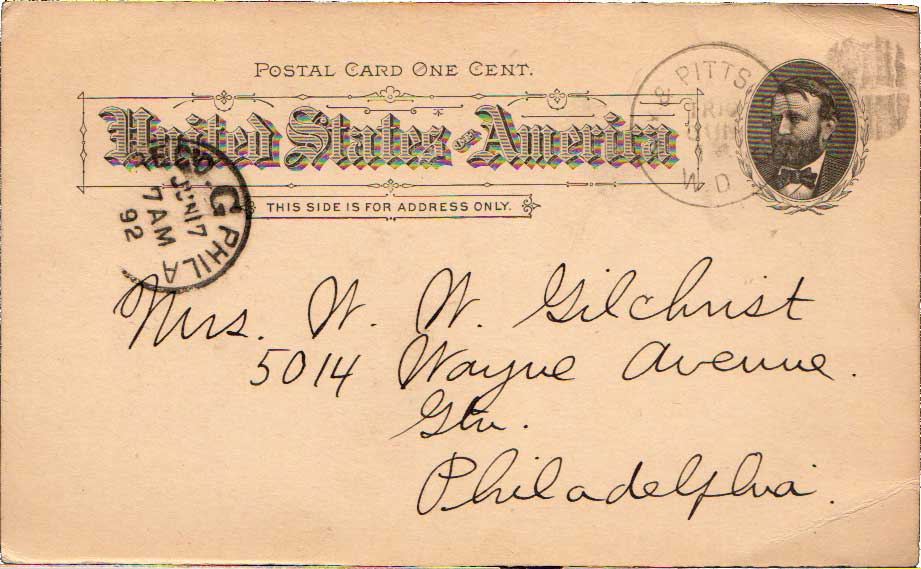 POSTAL CARD ONE CENT.
United States of America
THIS SIDE IS FOR ADDRESS ONLY.
PITTS
W D
G PHILA
JUN 17
7 AM
92
Mrs. W. W. Gilchrist
5014 Wayne Avenue.
Gtn.
Philadelphia.